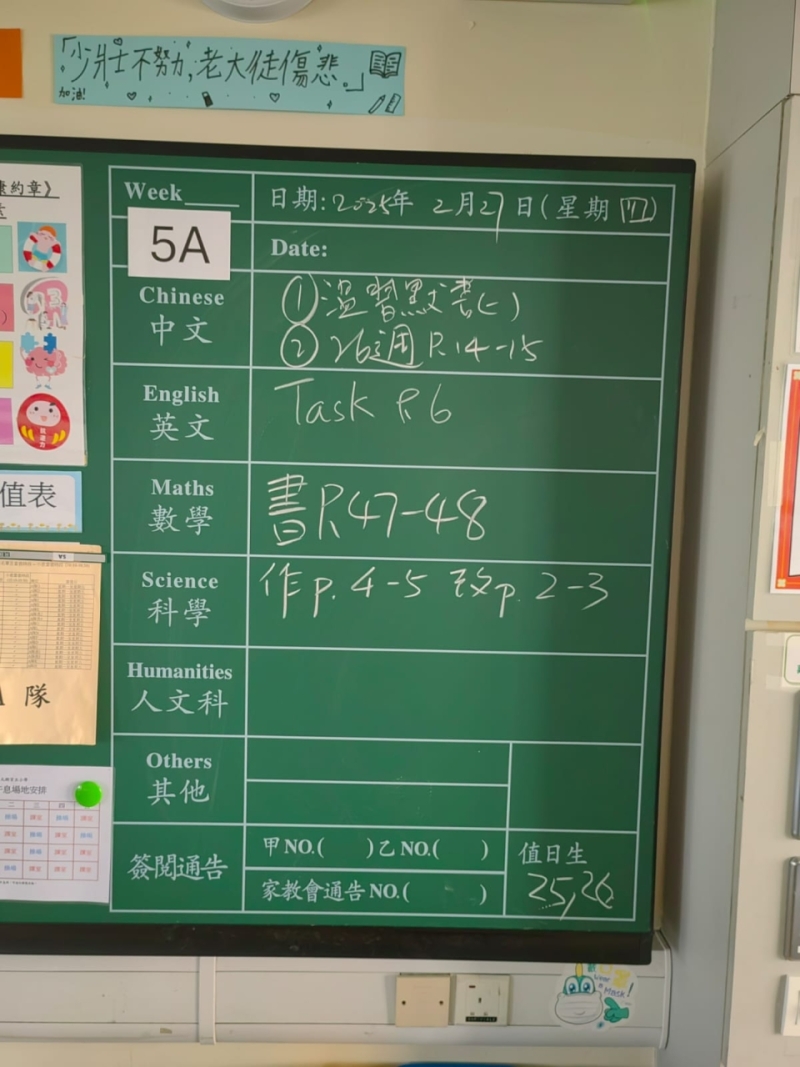 「少壯不努力,老大徒傷悲。」
加油!
Week
日期: 2025年 2月27日(星期四)
5A
Date:
Chinese
中文
①溫習默書(二)
②26週 P.14-15
English
英文
Task P.6
Maths
數學
書P.47-48
Science
科學
作p. 4-5 改p. 2-3
Humanities
人文科
Others
其他
簽閱通告
甲NO.( )乙NO.( )
家教會通告NO.( )
值日生
25,26
約章》
值表
隊
息場地安排
二 三 四